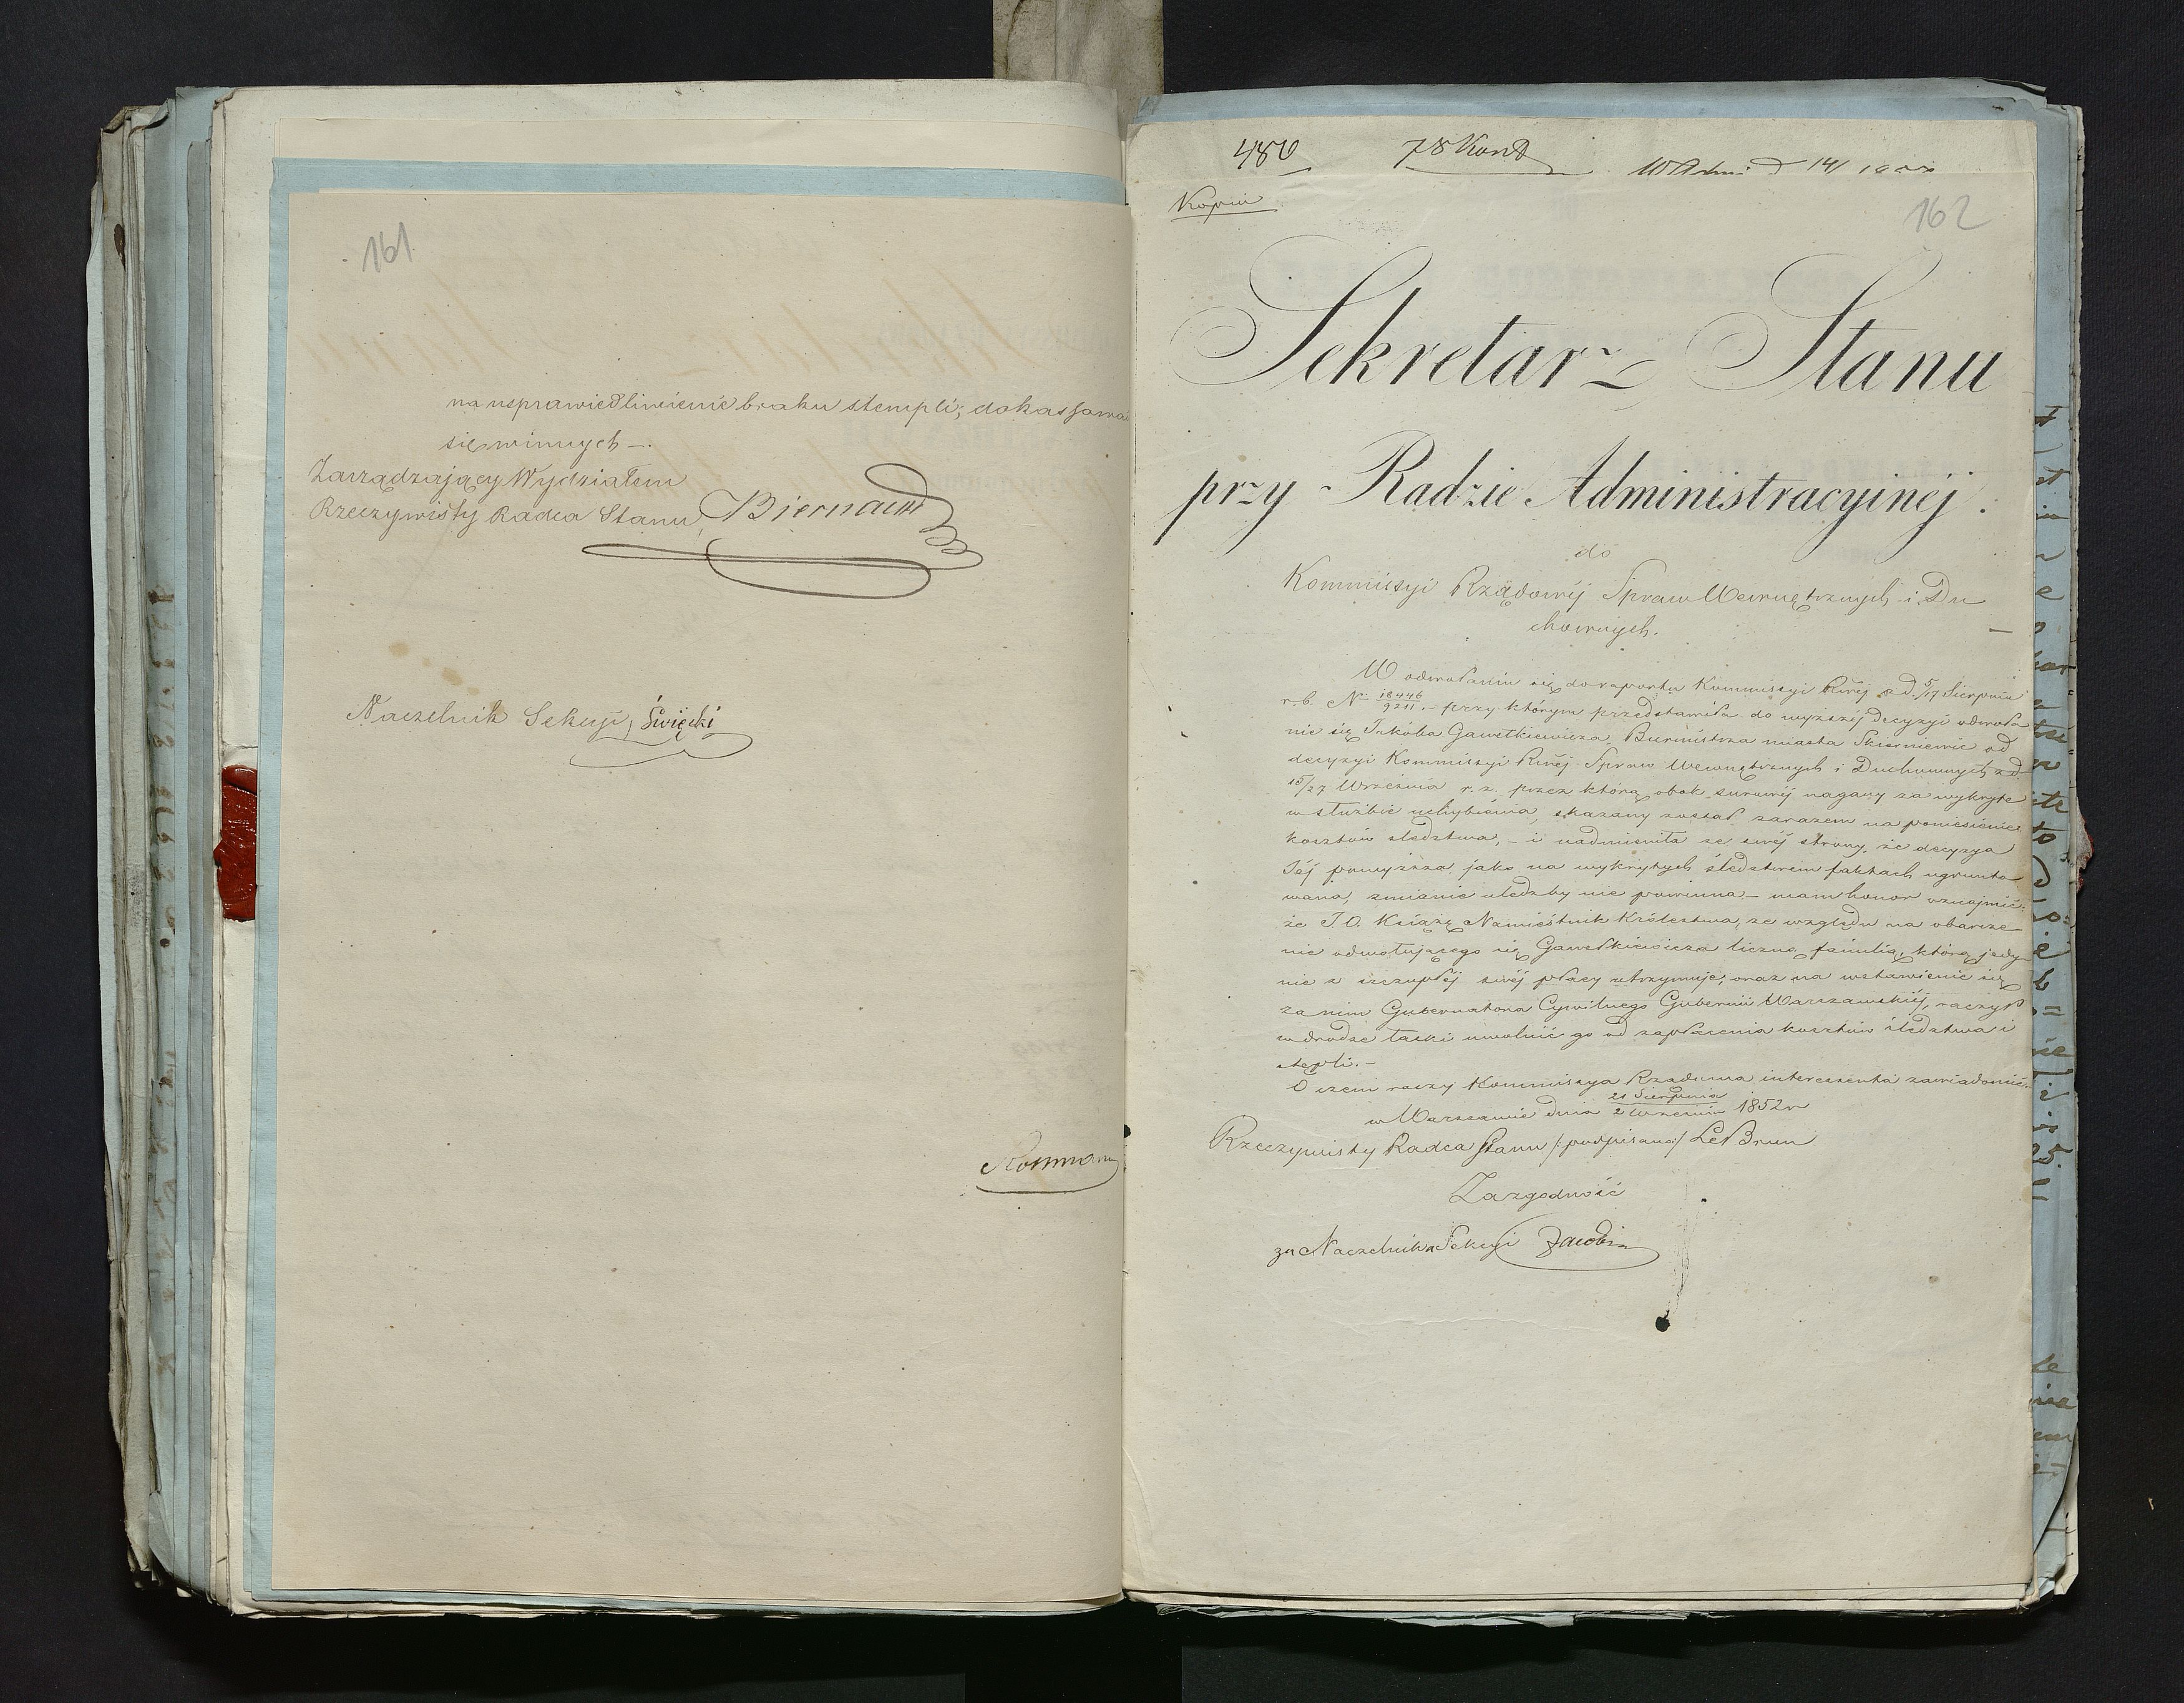 161
na usprawiedliwienie braku stempli; do kassowa
się winnych –.
Zarządzający Wydziałem
Rzeczywisty Radca Stanu, Biernacki
Naczelnik Sekcyi, Święcki
480
78
14/
Kopia
162
Sekretarz Stanu
przy Radzie Administracyjnéj.
do
Kommissyi Rządowéj Spraw Wewnętrznych i Du
chownych.
W odwołaniu się do raportu Kommissyi Rwéj z d. 5/17 Sierpnia
r. b. N. 18446/9211 – przy którym przedstawiła do wyższéj decyzyi odwoła
nie się Jakóba Gawełkiewicza, Burmistrza miasta Skierniewic od
decyzyi Kommissyi Rwéj Spraw Wewnętrznych i Duchownych z d.
15/27 Września r. z. przez którą obok surowéj nagany za wykryte
w służbie uchybienia, skazany został zarazem na poniesienie
kosztów śledztwa, – i nadmieniła ze swéj strony, że decyzya
Jéj powyższa, jako na wykrytych śledztwem faktach ugrunto
wana, zmianie uledzby nie powinna – mam honor oznajmić,
że J. O. Książę Namiestnik Królestwa, ze względu na obarcze
nie odwołującego się Gawełkiewicza liczną familią, którą jedy
nie z szczupłéj swéj płacy utrzymuje; oraz na wstawienie się
za nim Gubernatora Cywilnego Gubernii Warszawskiéj, raczył
w drodze łaski uwolnić go od zapłacenia kosztów śledztwa i
stępli. –
O czem raczy Kommissya Rządowa interessenta zawiadomić.
w Warszawie dnia 21 Sierpnia/2 Września 1852 r
Rzeczywisty Radca Stanu /:podpisano:/ Le Brun
Za zgodność
za Naczelnika Sekcyi